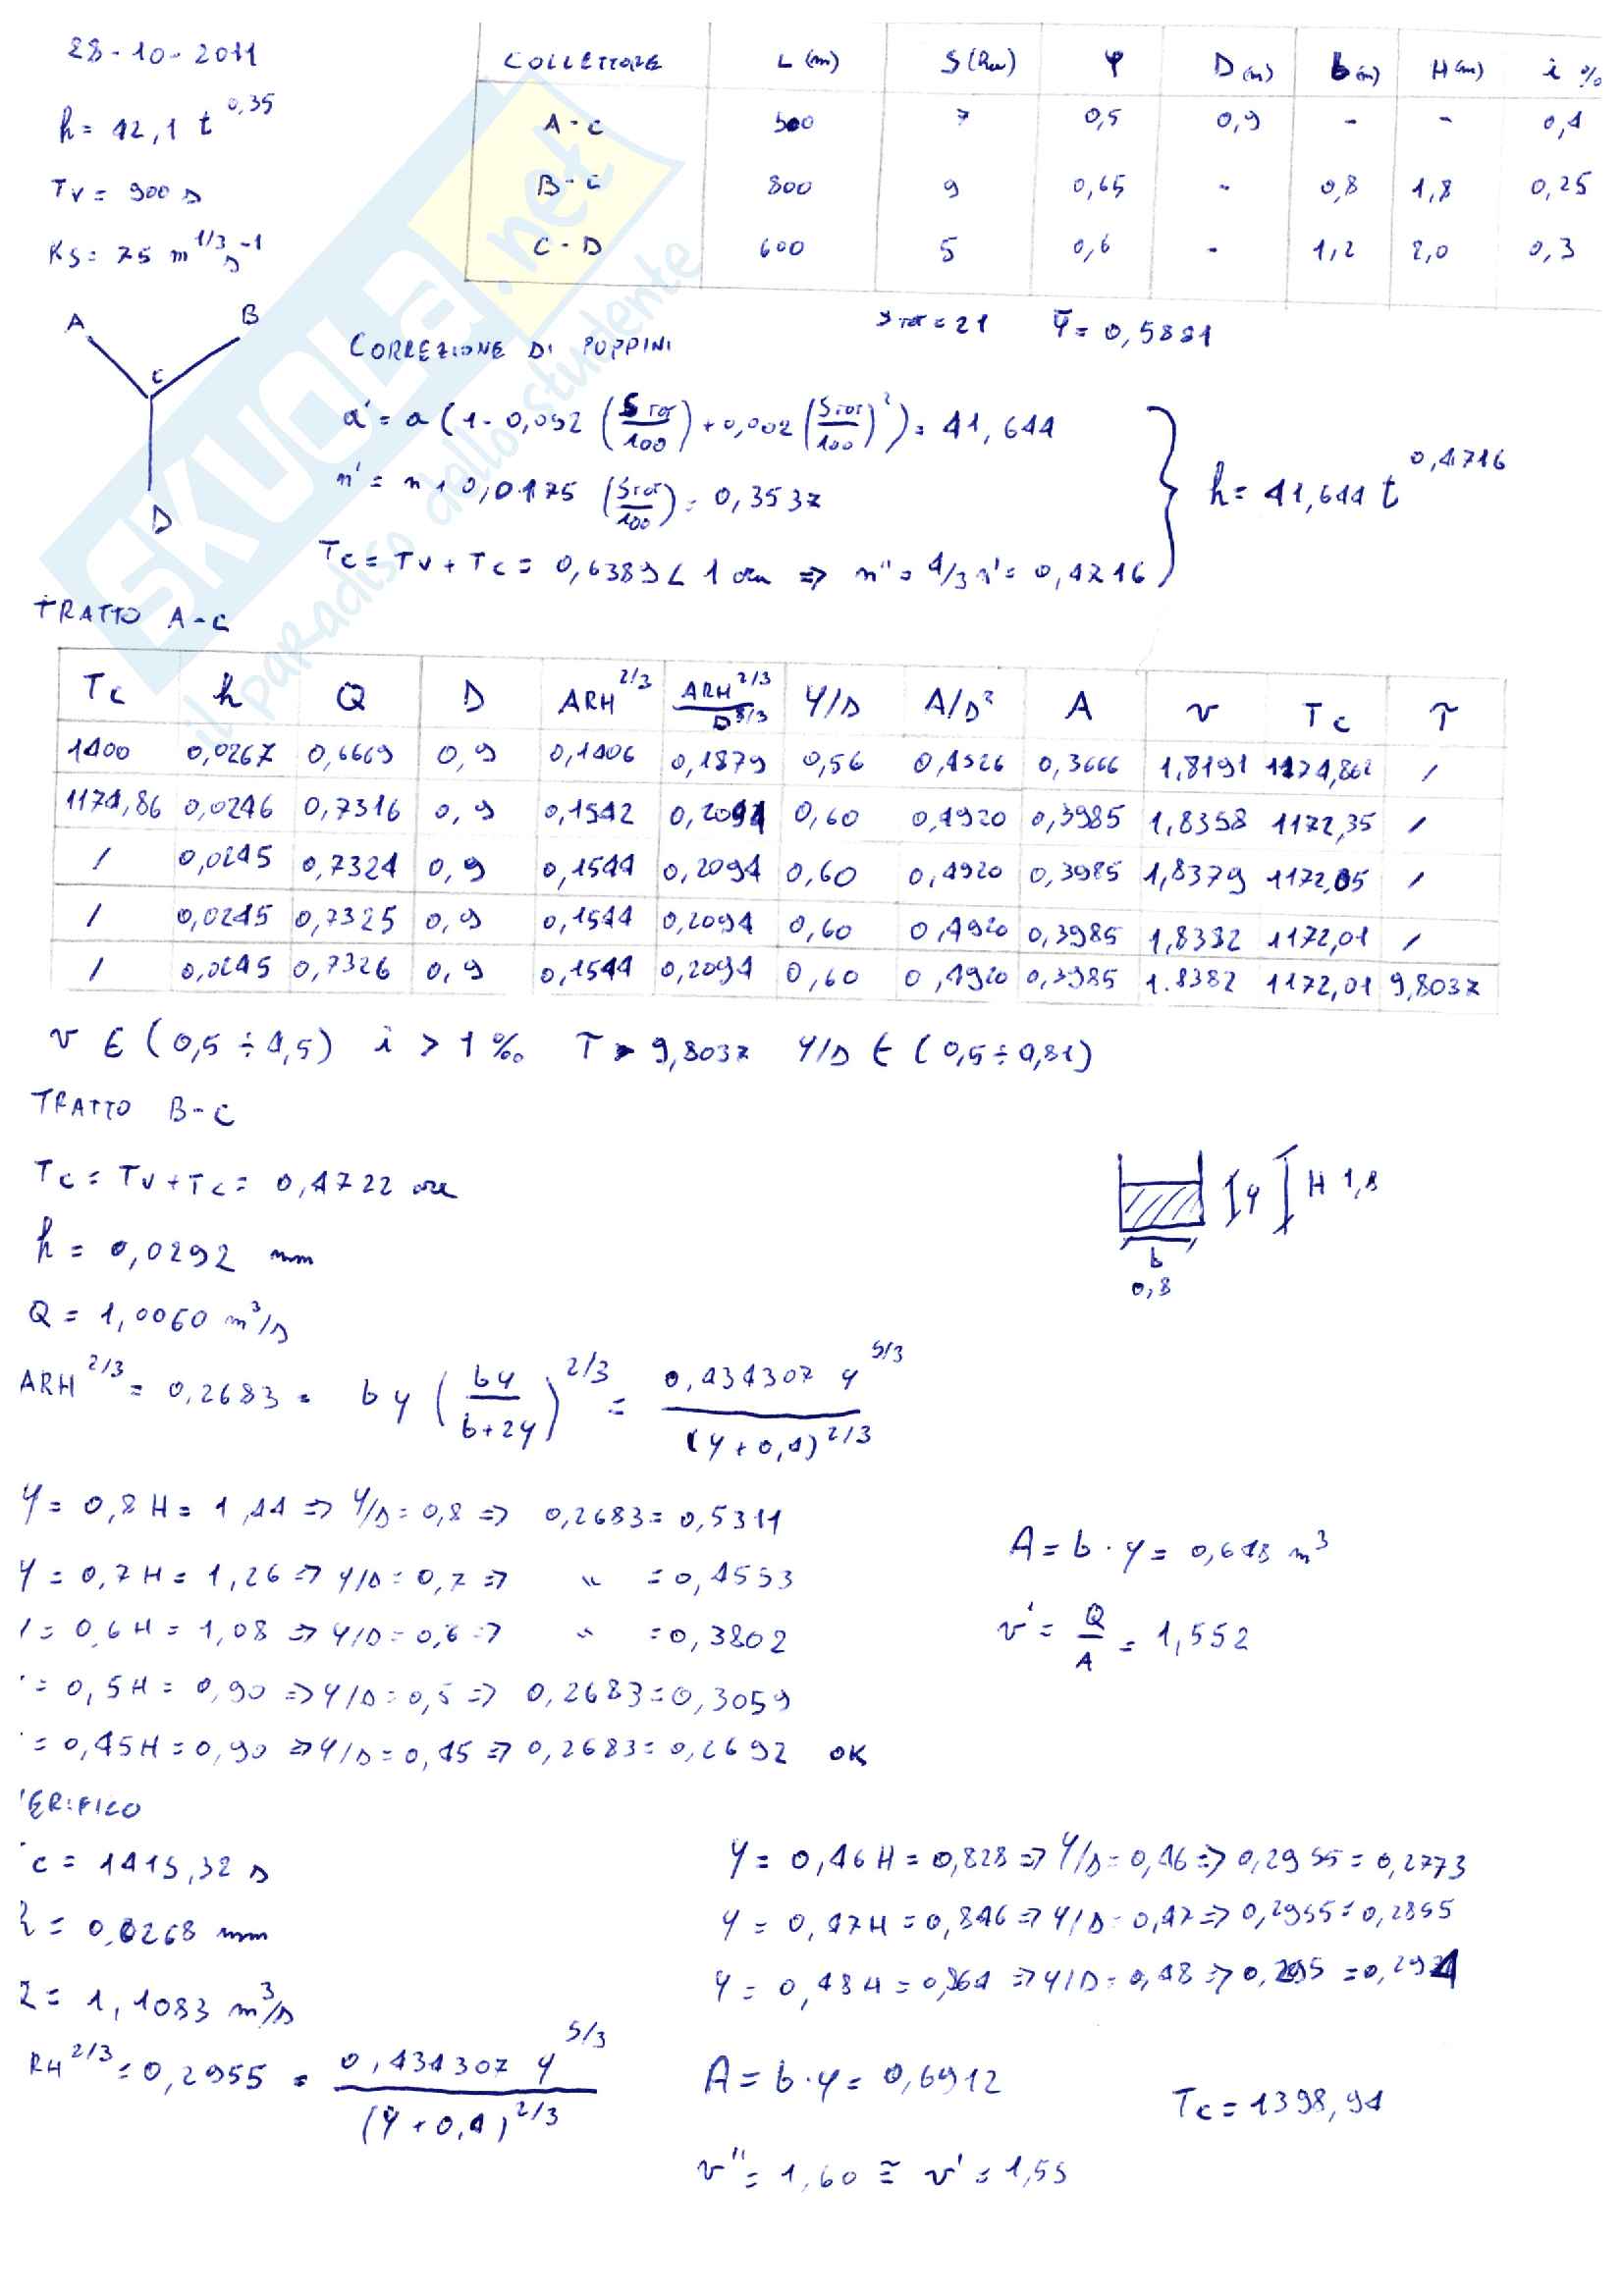 28-10-2011
h = 42,1 t^0,35
Tv = 900 s
Ks = 75 m^1/3 s^-1
COLLETTORE L (m) S (ha) φ D (m) b (m) H (m) i %
A-C 500 7 0,5 0,9 - - 0,4
B-C 800 9 0,65 - 0,8 1,8 0,25
C-D 600 5 0,6 - 1,2 2,0 0,3
S TOT = 21 φ̄ = 0,5881
A
B
C
D
CORREZIONE DI PUPPINI
a' = a (1 - 0,052 (S TOT/100) + 0,002 (S TOT/100)²) = 41,644
n' = n + 0,0175 (S TOT/100) = 0,3537
Tc = Tv + Tc = 0,6389 < 1 ora ⇒ n'' = 4/3 n' = 0,4716
h = 41,644 t^0,4716
TRATTO A-C
Tc h Q D ARH^2/3 ARH^2/3/D^8/3 Y/D A/D² A v Tc τ
1400 0,0267 0,6669 0,9 0,1406 0,1879 0,56 0,4526 0,3666 1,8191 1174,862 /
1174,86 0,0246 0,7316 0,9 0,1542 0,2094 0,60 0,4920 0,3985 1,8358 1172,35 /
/ 0,0245 0,7324 0,9 0,1544 0,2094 0,60 0,4920 0,3985 1,8379 1172,05 /
/ 0,0245 0,7325 0,9 0,1544 0,2094 0,60 0,4920 0,3985 1,8382 1172,01 /
/ 0,0245 0,7326 0,9 0,1544 0,2094 0,60 0,4920 0,3985 1.8382 1172,01 9,8037
v ∈ (0,5 ÷ 4,5) i > 1 ‰ τ > 9,8037 Y/D ∈ (0,5 ÷ 0,81)
TRATTO B-C
Tc = Tv + Tc = 0,4722 ore
h = 0,0292 mm
Q = 1,0060 m³/s
y H 1,8
b
0,8
ARH^2/3 = 0,2683 = by (by/(b+2y))^2/3 = 0,434307 y^5/3 / (y+0,4)^2/3
Y = 0,8 H = 1,44 ⇒ Y/D = 0,8 ⇒ 0,2683 = 0,5311
Y = 0,7 H = 1,26 ⇒ Y/D = 0,7 ⇒ " = 0,4553
= 0,6 H = 1,08 ⇒ Y/D = 0,6 ⇒ " = 0,3802
= 0,5 H = 0,90 ⇒ Y/D = 0,5 ⇒ 0,2683 = 0,3059
= 0,45 H = 0,90 ⇒ Y/D = 0,45 ⇒ 0,2683 = 0,2692 OK
A = b · y = 0,648 m³
v' = Q/A = 1,552
ERIFICO
c = 1415,32 s
= 0,0268 mm
= 1,1083 m³/s
RH^2/3 = 0,2955 = 0,434307 y^5/3 / (y+0,4)^2/3
Y = 0,46 H = 0,828 ⇒ Y/D = 0,46 ⇒ 0,2955 = 0,2773
Y = 0,47 H = 0,846 ⇒ Y/D = 0,47 ⇒ 0,2955 = 0,2855
Y = 0,48 H = 0,864 ⇒ Y/D = 0,48 ⇒ 0,295 = 0,2934
A = b · y = 0,6912
Tc = 1398,94
v'' = 1,60 ≅ v' = 1,55
SKUOLA.net
il paradiso dello studente